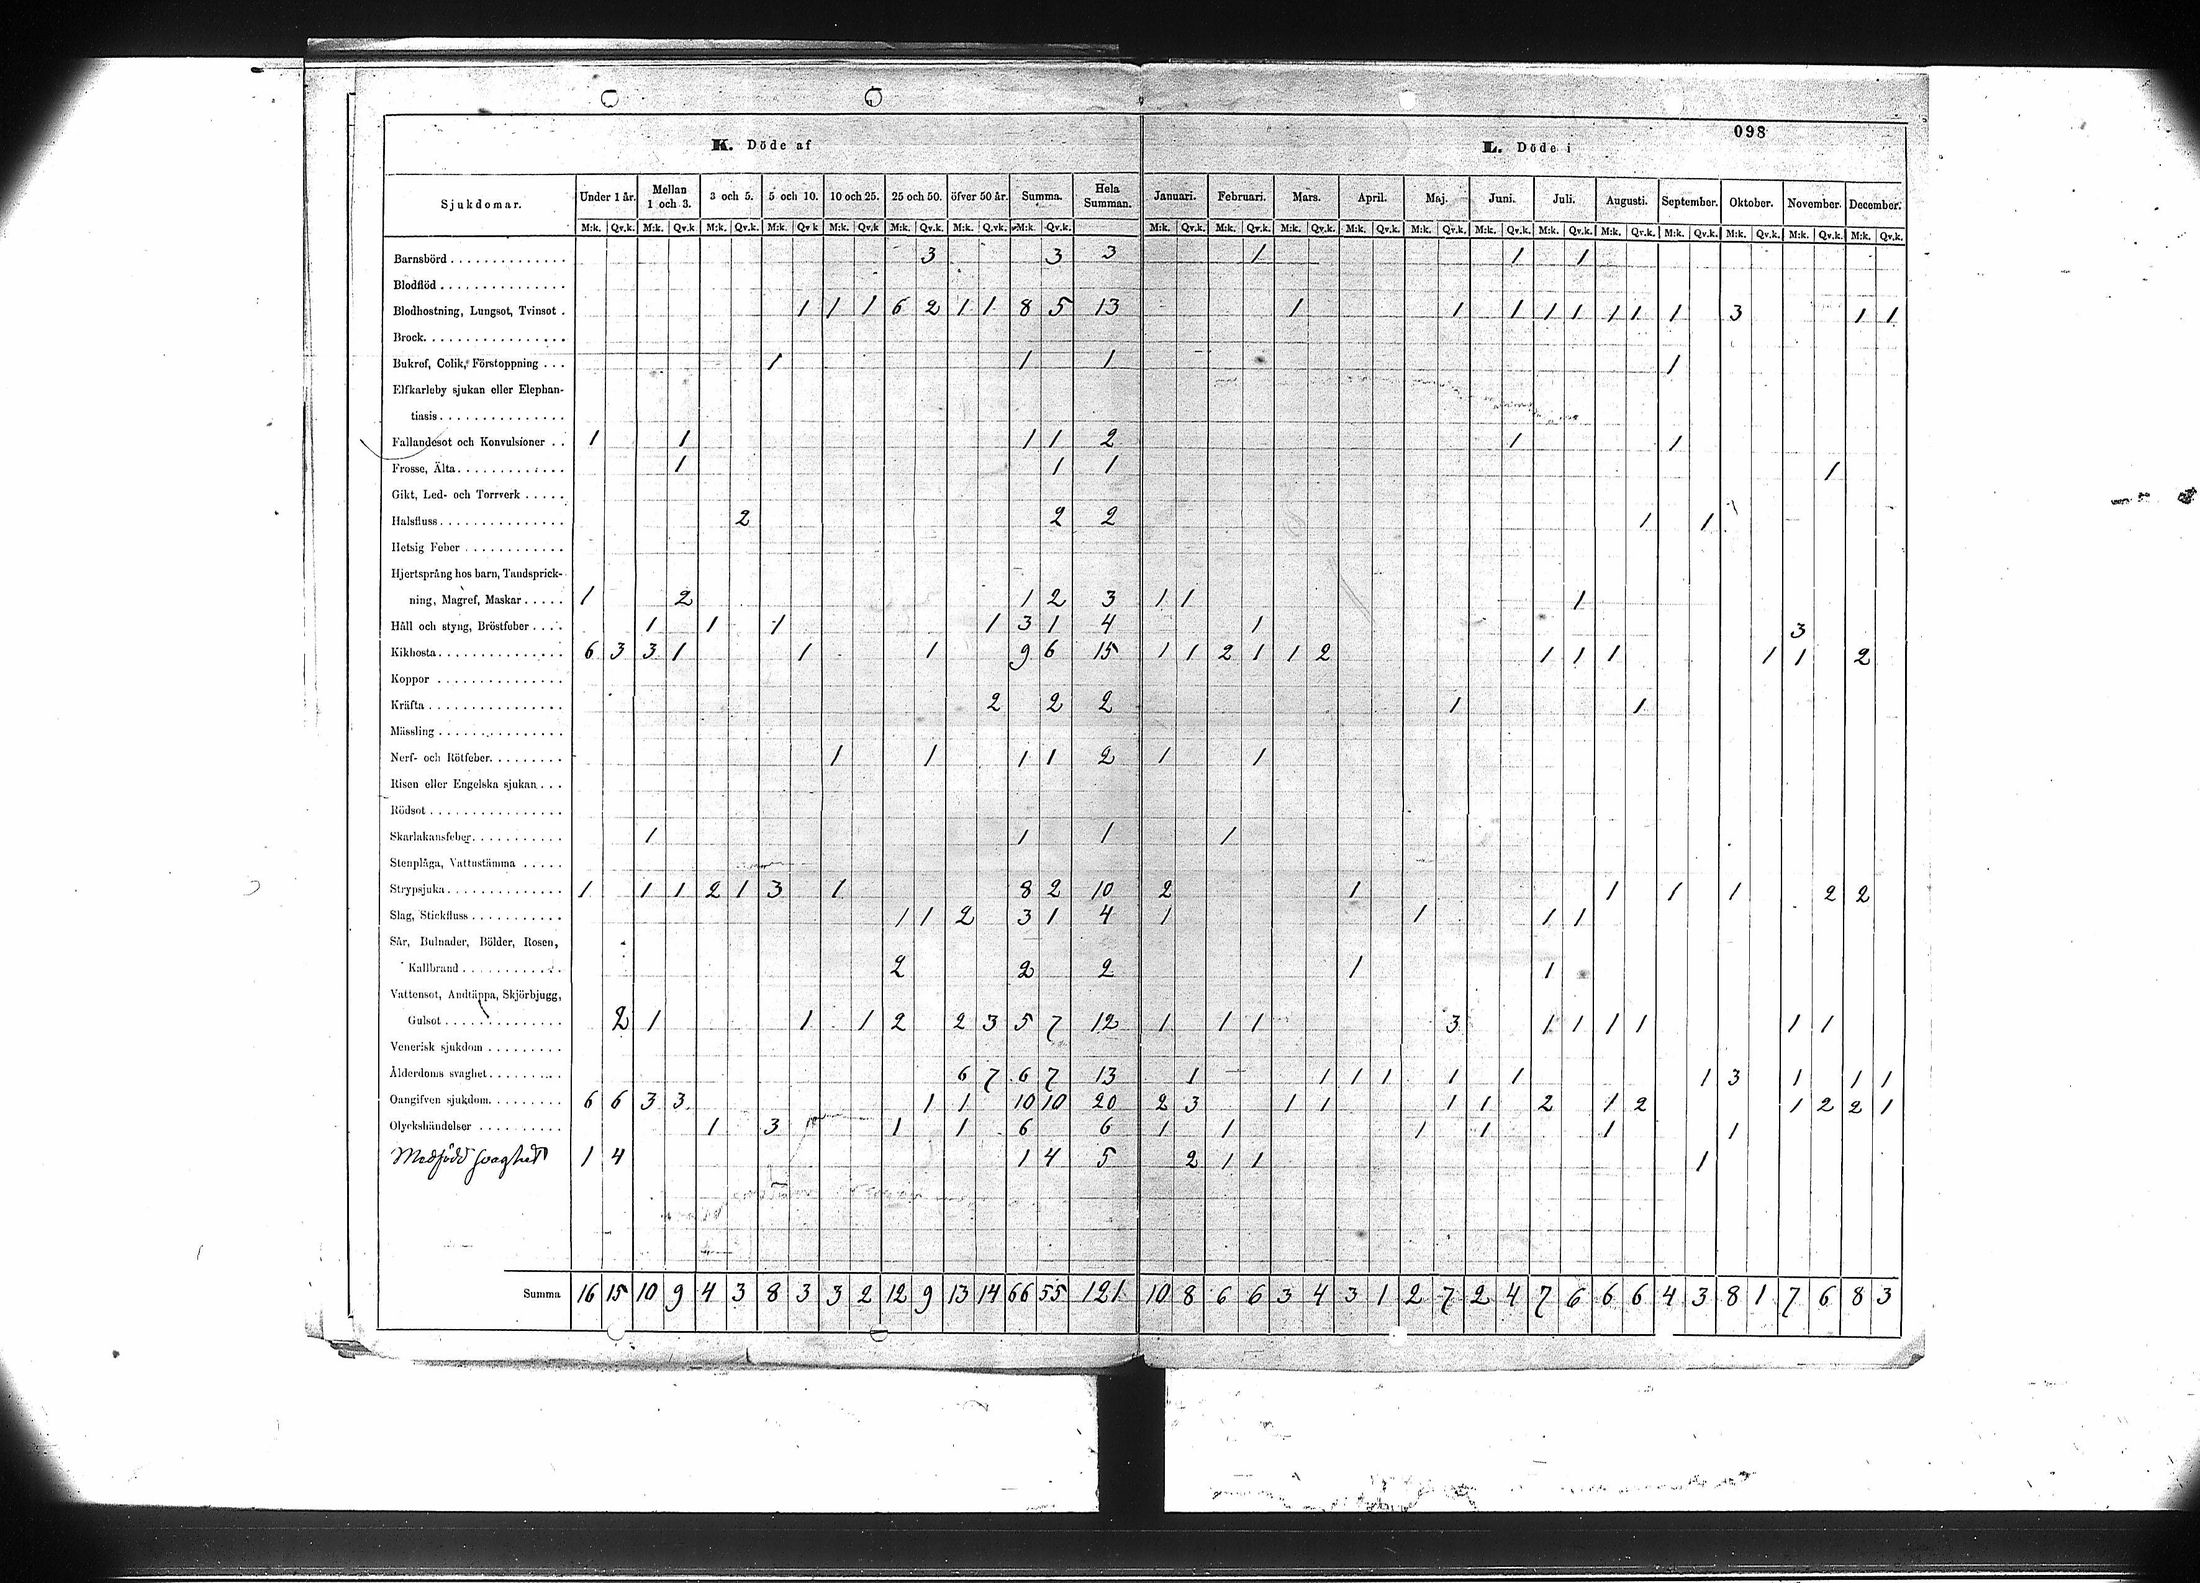 098
K. Döde af L. Döde i
Sjukdomar. Under 1 år. Mellan 1 och 3. 3 och 5. 5 och 10. 10 och 25. 25 och 50. öfver 50 år. Summa. Hela Summan. Januari. Februari. Mars. April. Maj. Juni. Juli. Augusti. September. Oktober. November. December.
M:k. Qv.k. M:k. Qv.k M:k. Qv.k. M:k. Qv k M:k. Qv.k M:k. Qv.k. M:k. Qv.k. M:k. Qv.k. M:k. Qv.k. M:k. Qv.k. M:k. Qv.k. M:k. Qv.k. M:k. Qv.k. M:k. Qv.k. M:k. Qv.k. M:k. Qv.k. M:k. Qv.k. M:k. Qv.k. M:k. Qv.k. M:k. Qv.k.
Barnsbörd 3 3 3 1 1 1
Blodflöd
Blodhostning, Lungsot, Tvinsot 1 1 1 6 2 1 1 8 5 13 1 1 1 1 1 1 1 1 3 1 1
Brock
Bukref, Colik, Förstoppning 1 1 1 1
Elfkarleby sjukan eller Elephan-
tiasis
Fallandesot och Konvulsioner 1 1 1 1 2 1 1
Frosse, Älta 1 1 1 1
Gikt, Led- och Torrverk
Halsfluss 2 2 2 1 1
Hetsig Feber
Hjertsprång hos barn, Tandsprick-
ning, Magref, Maskar 1 2 1 2 3 1 1 1
Håll och styng, Bröstfeber 1 1 1 1 3 1 4 1 3
Kikhosta 6 3 3 1 1 1 9 6 15 1 1 2 1 1 2 1 1 1 1 1 2
Koppor
Kräfta 2 2 2 1 1
Mässling
Nerf- och Rötfeber 1 1 1 1 2 1 1
Risen eller Engelska sjukan
Rödsot
Skarlakansfeber 1 1 1 1
Stenplåga, Vattustämma
Strypsjuka 1 1 1 2 1 3 1 8 2 10 2 1 1 1 1 2 2
Slag, Stickfluss 1 1 2 3 1 4 1 1 1 1
Sår, Bulnader, Bölder, Rosen,
Kallbrand 2 2 2 1 1
Vattensot, Andtäppa, Skjörbjugg,
Gulsot 2 1 1 1 2 2 3 5 7 12 1 1 1 3 1 1 1 1 1 1
Venerisk sjukdom
Ålderdoms svaghet 6 7 6 7 13 1 1 1 1 1 1 1 3 1 1 1
Oangifven sjukdom 6 6 3 3 1 1 10 10 20 2 3 1 1 1 1 2 1 2 1 2 2 1
Olyckshändelser 1 3 1 1 6 6 1 1 1 1 1 1
Medfödd svaghet 1 4 1 4 5 2 1 1 1
Summa 16 15 10 9 4 3 8 3 3 2 12 9 13 14 66 55 121 10 8 6 6 3 4 3 1 2 7 2 4 7 6 6 6 4 3 8 1 7 6 8 3